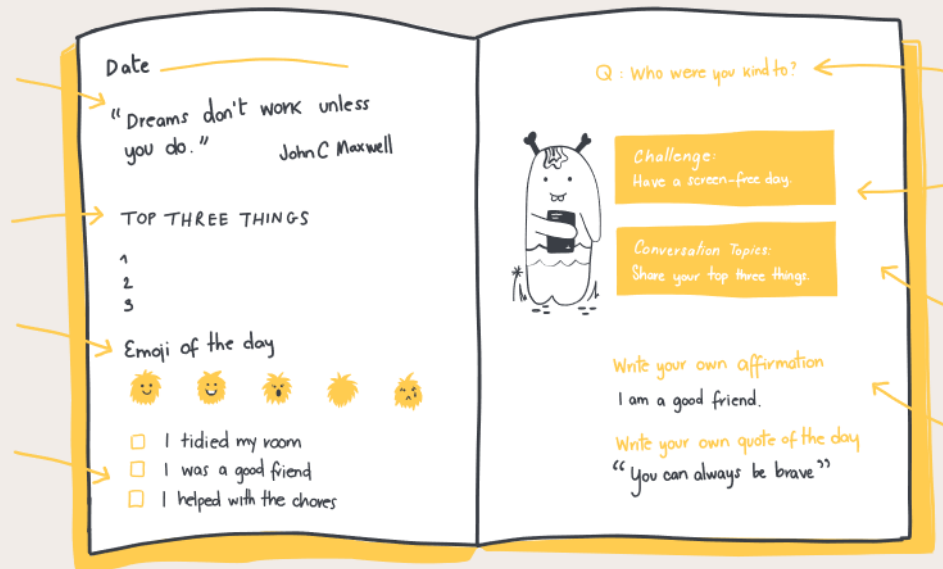 Date
“Dreams don't work unless
you do.”
John C Maxwell
TOP THREE THINGS
1
2
3
Emoji of the day
I tidied my room
I was a good friend
I helped with the chores
Q : Who were you kind to?
Challenge:
Have a screen-free day.
Conversation Topics:
Share your top three things.
Write your own affirmation
I am a good friend.
Write your own quote of the day
“You can always be brave”